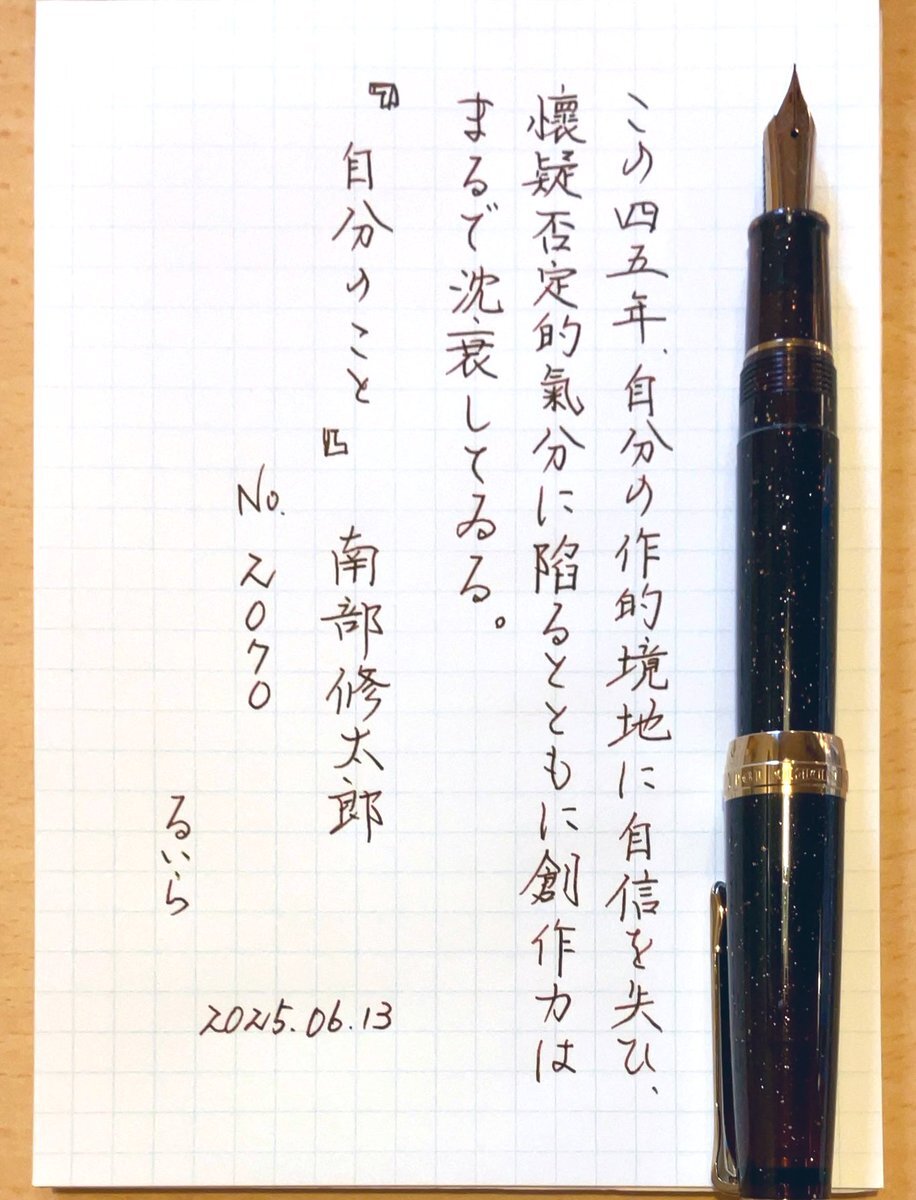 この四五年、自分の作的境地に自信を失ひ、
懷疑否定的氣分に陷るとともに創作力は
まるで沈衰してゐる。
『自分のこと』 南部修太郎
No. 2070
るいら
2025.06.13